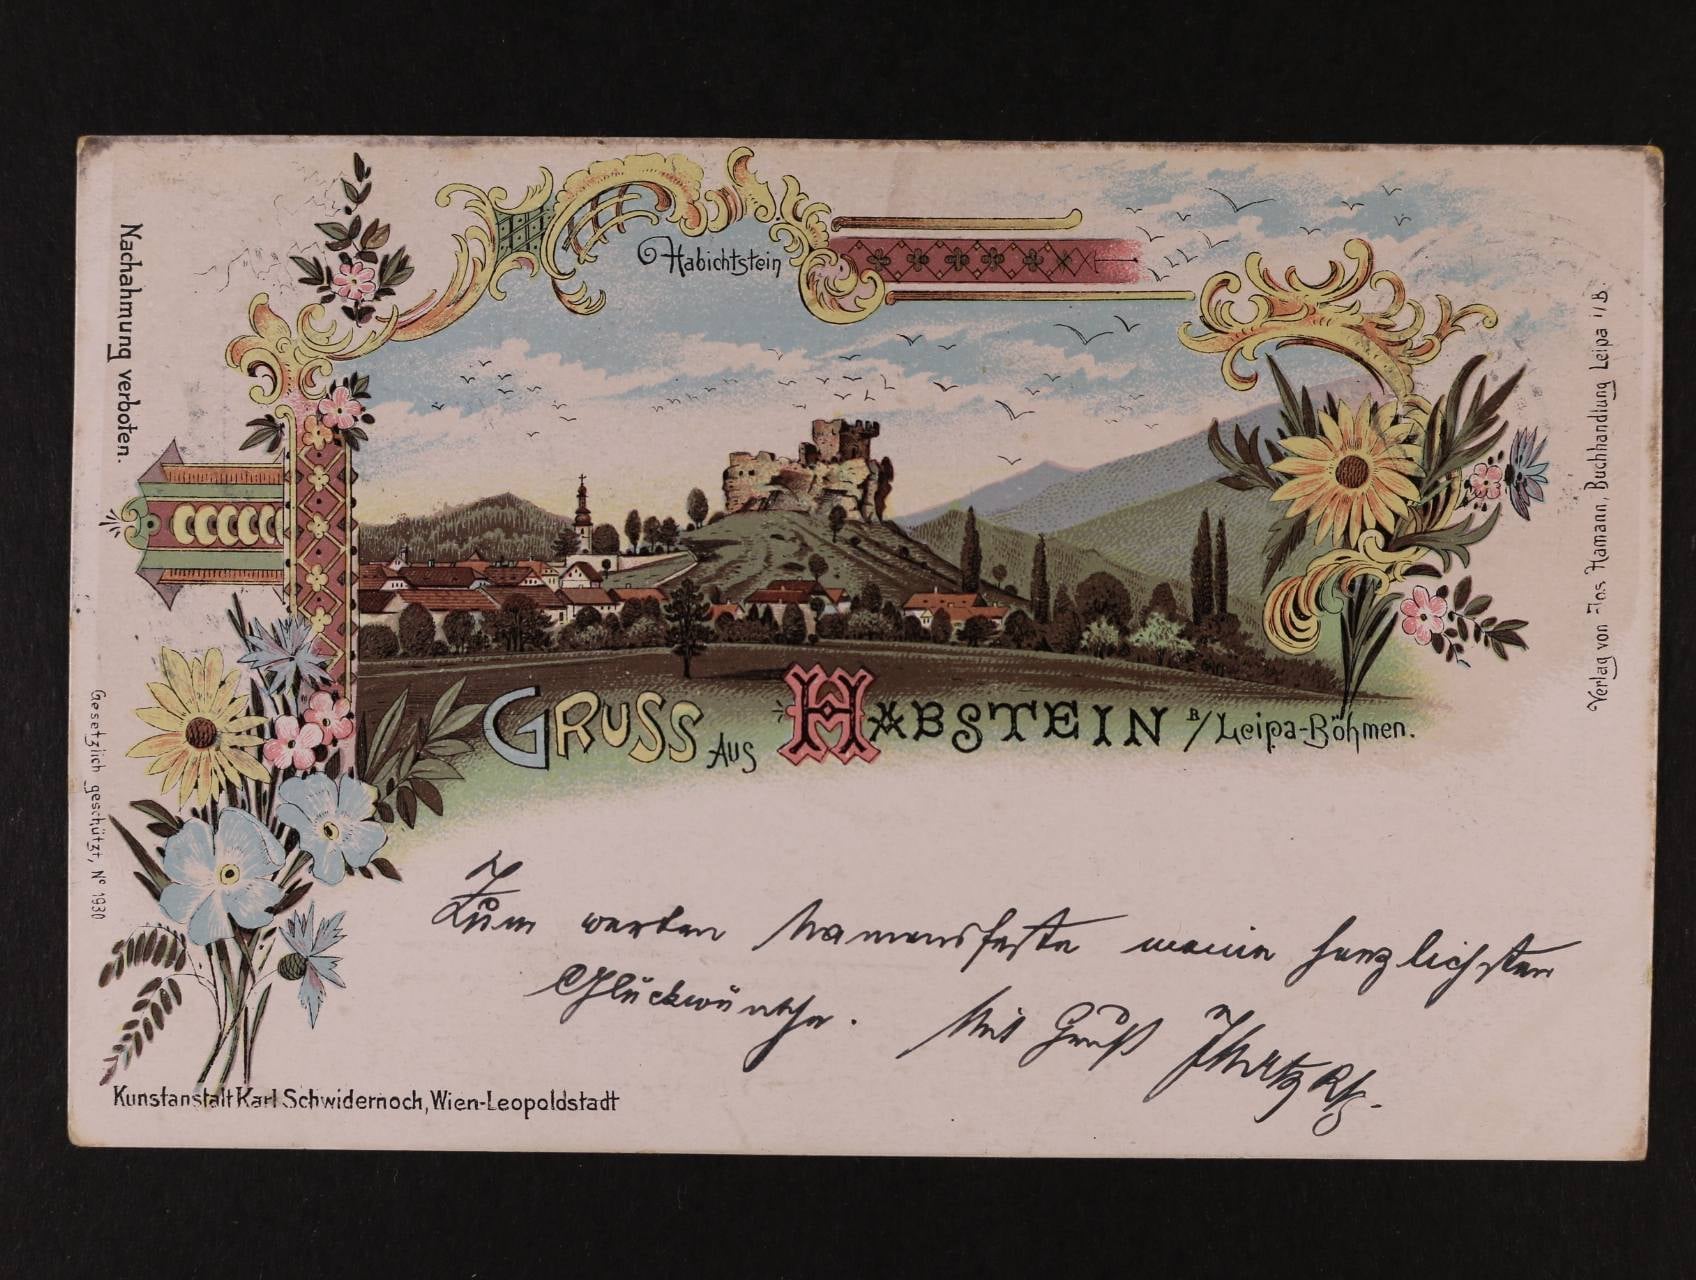 Habichtstein
Nachahmung verboten.
Verlag von Jos Hamann, Buchhandlung Leipa i/B.
GRUSS AUS HABSTEIN B/Leipa-Böhmen.
Gesetzlich geschützt, No 1930
Zum werten Namensfeste meine herzlichsten
Glückwünsche. Mit Gruß
Kunstanstalt Karl Schwidernoch, Wien-Leopoldstadt